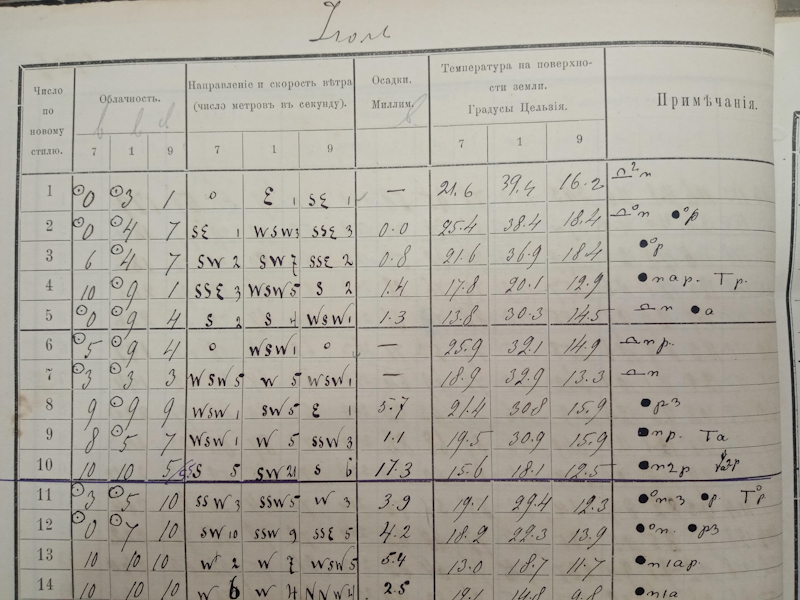 Июль
Число по новому стилю. Облачность. Направленіе и скорость вѣтра (число метровъ въ секунду). Осадки. Миллим. Температура на поверхности земли. Градусы Цельзія. Примѣчанія.
7 1 9 7 1 9 7 1 9
1 ⊙0 ⊙3 1 0 E 1 SE 1 — 21.6 39.4 16.2 n
2 ⊙0 ⊙4 7 SE 1 WSW 3 SSE 3 0.0 25.4 38.4 18.4 n ●⁰p
3 6 ⊙4 7 SW 2 SW 7 SSE 2 0.8 21.6 36.9 18.4 ●⁰p
4 10 ⊙9 1 SSE 3 WSW 5 S 2 1.4 17.8 20.1 12.9 ●nap. Tp.
5 ⊙0 ⊙9 4 S 2 S 4 WSW 1 1.3 13.8 30.3 14.5 n ●a
6 ⊙5 ⊙9 4 0 WSW 1 0 — 25.9 32.1 14.9 np.
7 ⊙3 ⊙3 3 WSW 5 W 5 WSW 1 — 18.9 32.9 13.3 n
8 9 ⊙9 9 WSW 1 SW 5 E 1 5.7 21.4 30.8 15.9 ●p3
9 8 ⊙5 7 WSW 1 W 5 SSW 3 1.1 19.5 30.9 15.9 ●np. Ta
10 10 10 S 5 SW 21 S 6 17.3 15.6 18.1 12.5 ●n2p
11 ⊙3 ⊙5 10 SSW 3 SSW 5 W 3 3.9 19.1 29.4 12.3 ●⁰n-3 ●p. T⁰p
12 ⊙0 ⊙7 10 SW 10 SSW 9 SSE 5 4.2 18.2 22.3 13.9 ●⁰n. ●p3
13 10 10 10 W 2 W 7 WSW 5 5.4 13.0 18.7 11.7 ●n1ap.
14 10 10 10 W 6 W 4 NNW 4 2.5 14.8 9.8 ●n1a